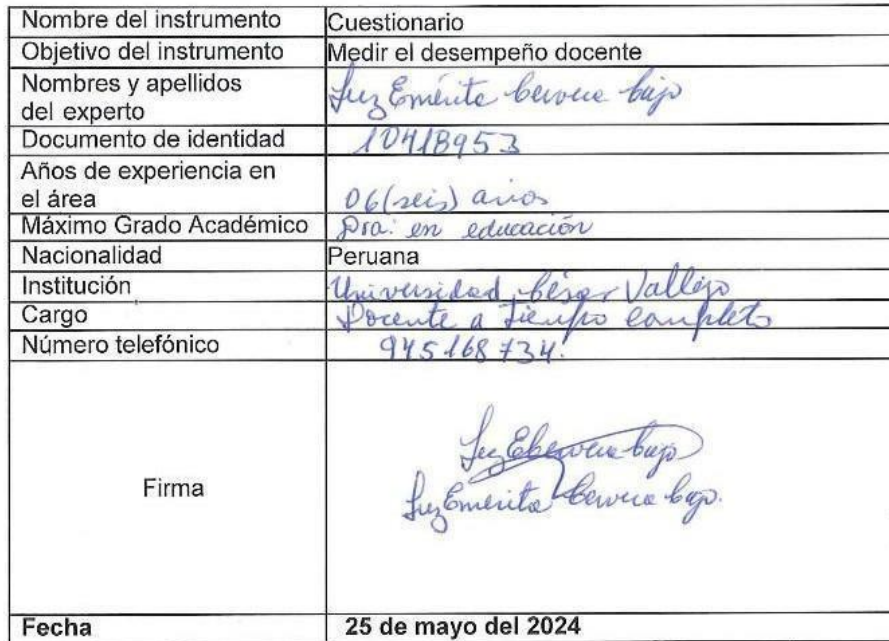 Nombre del instrumento Cuestionario
Objetivo del instrumento Medir el desempeño docente
Nombres y apellidos
del experto Luz Emérita Cervera Cajo
Documento de identidad 10418953
Años de experiencia en
el área 06 (seis) años
Máximo Grado Académico Dra. en educación
Nacionalidad Peruana
Institución Universidad César Vallejo
Cargo Docente a Tiempo completo
Número telefónico 945168734.
Firma
Luz E Cervera Cajo
Luz Emerita Cervera Cajo.
Fecha 25 de mayo del 2024